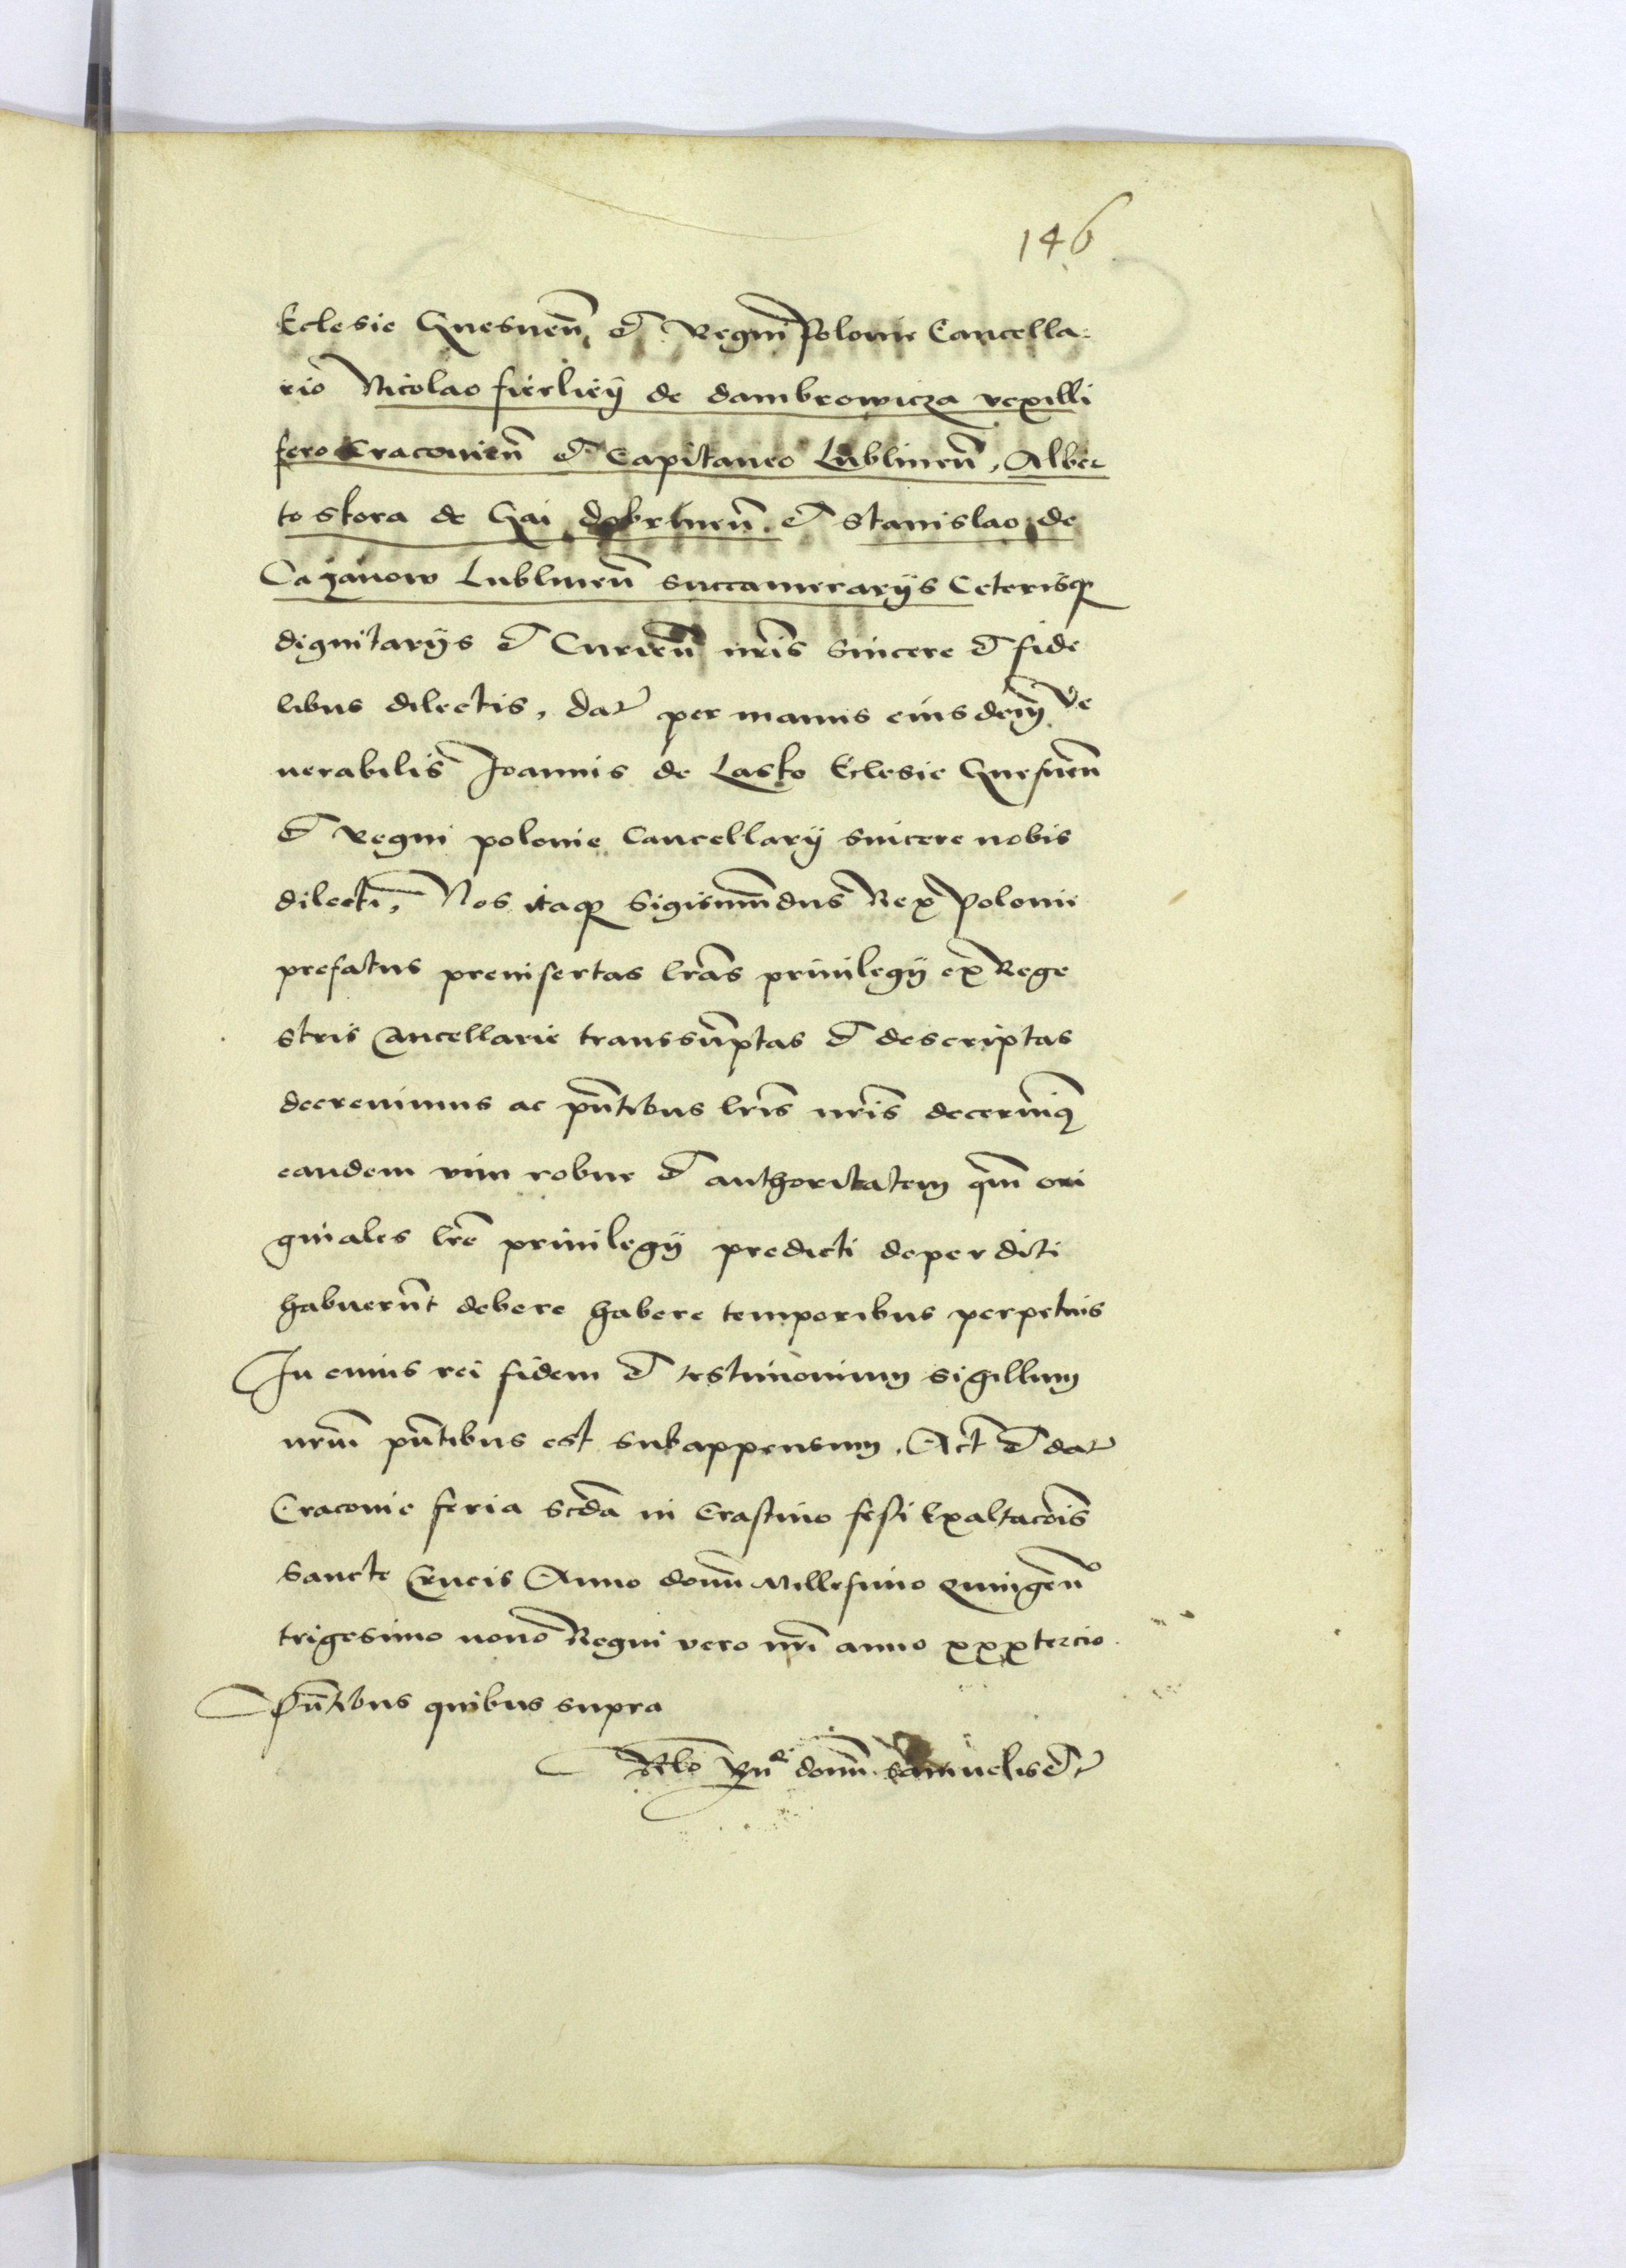 146
Eclesie Gnesnen̄, et Regni Polonie Cancella:
rio Nicolao fierlieÿ de dambrowicza vexilli
fero Cracovien̄ et Capitaneo Lublinen̄, Alber
to skora de Gai dobrinen̄ et Stanislao de
Cazanow Lublinen̄ succamerarÿs Ceterisqꝫ
dignitarÿs et Curien̄ nr̄is sincere et fide
libus dilectis, dat per manus eiusdem ve
nerabilis Joannis de Lasko Eclesie Gnesnen̄
et Regni polonie Cancellarÿ sincere nobis
dilecti, Nos itaqꝫ Sigismūdus Rex Polonie
prefatus preinsertas lr̄as priuilegÿ ex Rege
stris Cancellarie transsūptas et descriptas
decreuimus ac pn̄tibus lr̄is nr̄is decernimꝫ
eandem vim robur et authoritatem qm̄ ori
ginales lr̄e priuilegÿ predicti deperditi
habuerūt debere habere temporibus perpetuis
In cuius rei fidem et testimonium sigillum
nr̄m pn̄tibus est subappensum. Act et dat
Cracovie feria scd̄a in Crastino festi Exaltac̄ois
Sancte Crucis Anno domī Millesimo quingen̄º
trigesimo nono Regni vero nr̄i anno xxxtercio.
Pn̄tibus quibus supra
Rl̄o Vnͤ domī Samuelis et